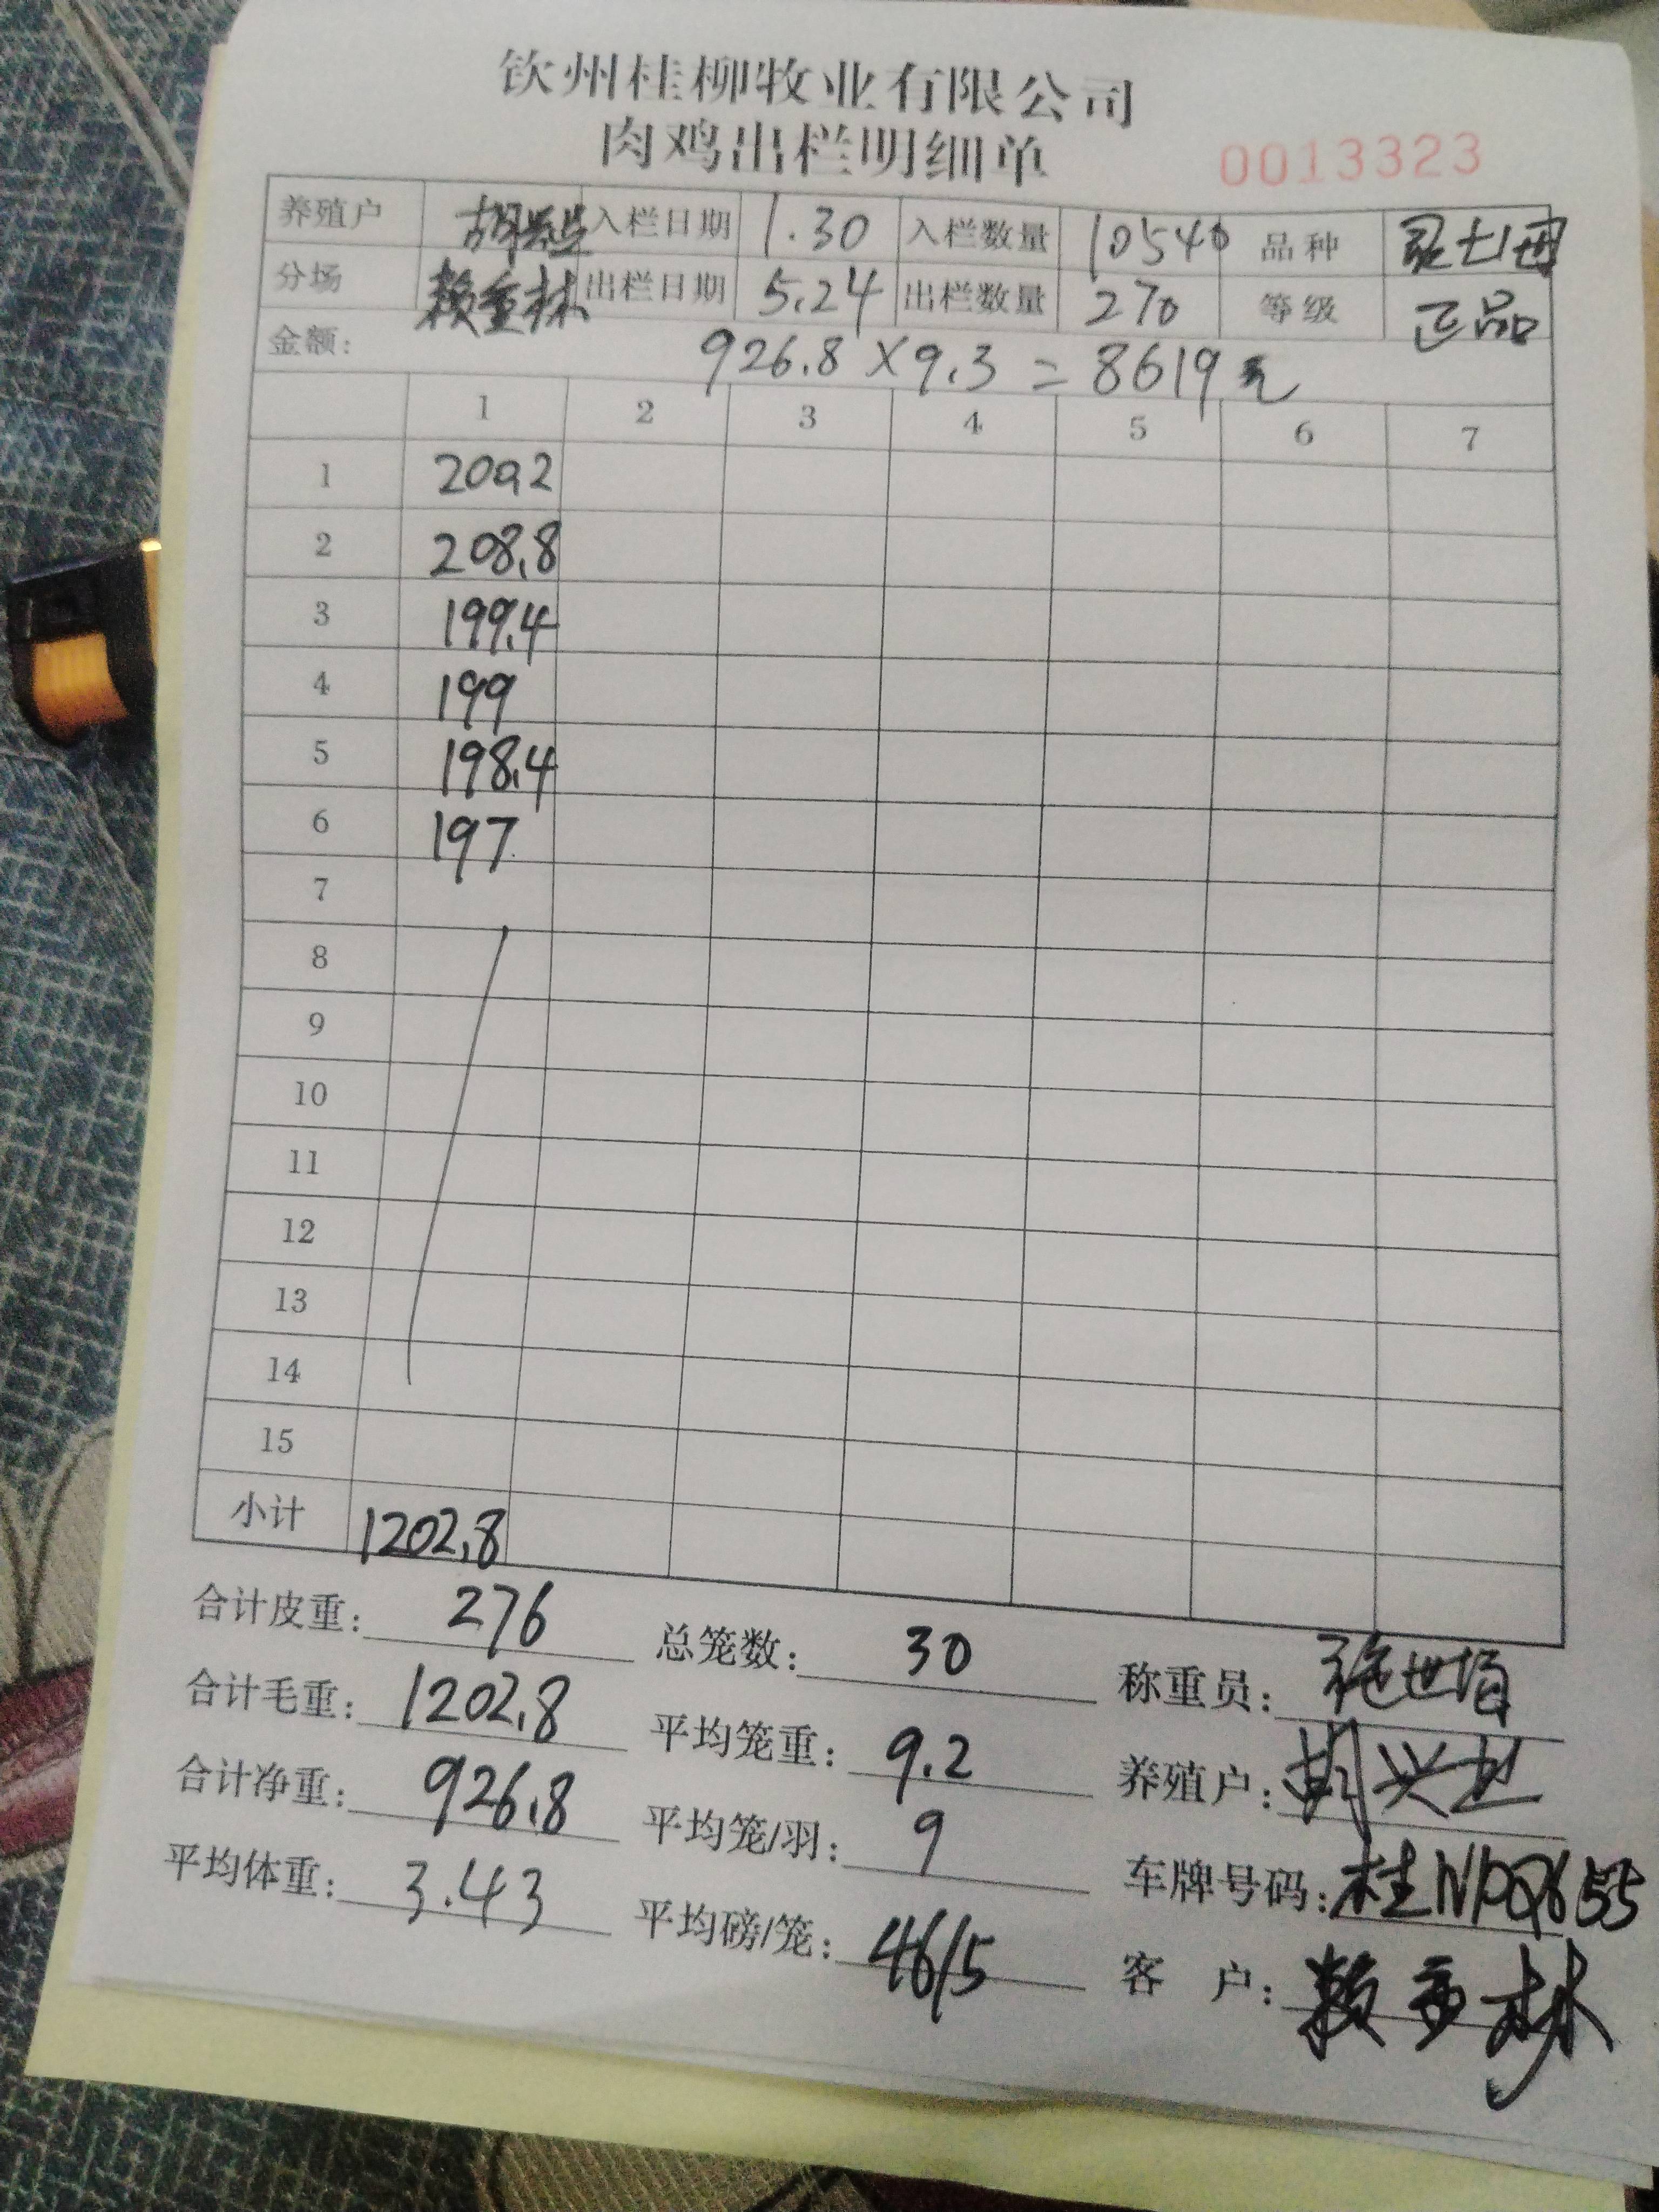 钦州桂柳牧业有限公司
肉鸡出栏明细单
0013323
养殖户 胡 入栏日期 1.30 入栏数量 10540 品种
分场 赖重林 出栏日期 5.24 出栏数量 270 等级 正品
金额: 926.8×9.3=8619元
1 2 3 4 5 6 7
1 209.2
2 208.8
3 199.4
4 199
5 198.4
6 197
7
8
9
10
11
12
13
14
15
小计 1202.8
合计皮重: 276 总笼数: 30 称重员:
合计毛重: 1202.8 平均笼重: 9.2 养殖户:
合计净重: 926.8 平均笼/羽: 9 车牌号码:
平均体重: 3.43 平均磅/笼: 46/5 客 户: 赖重林